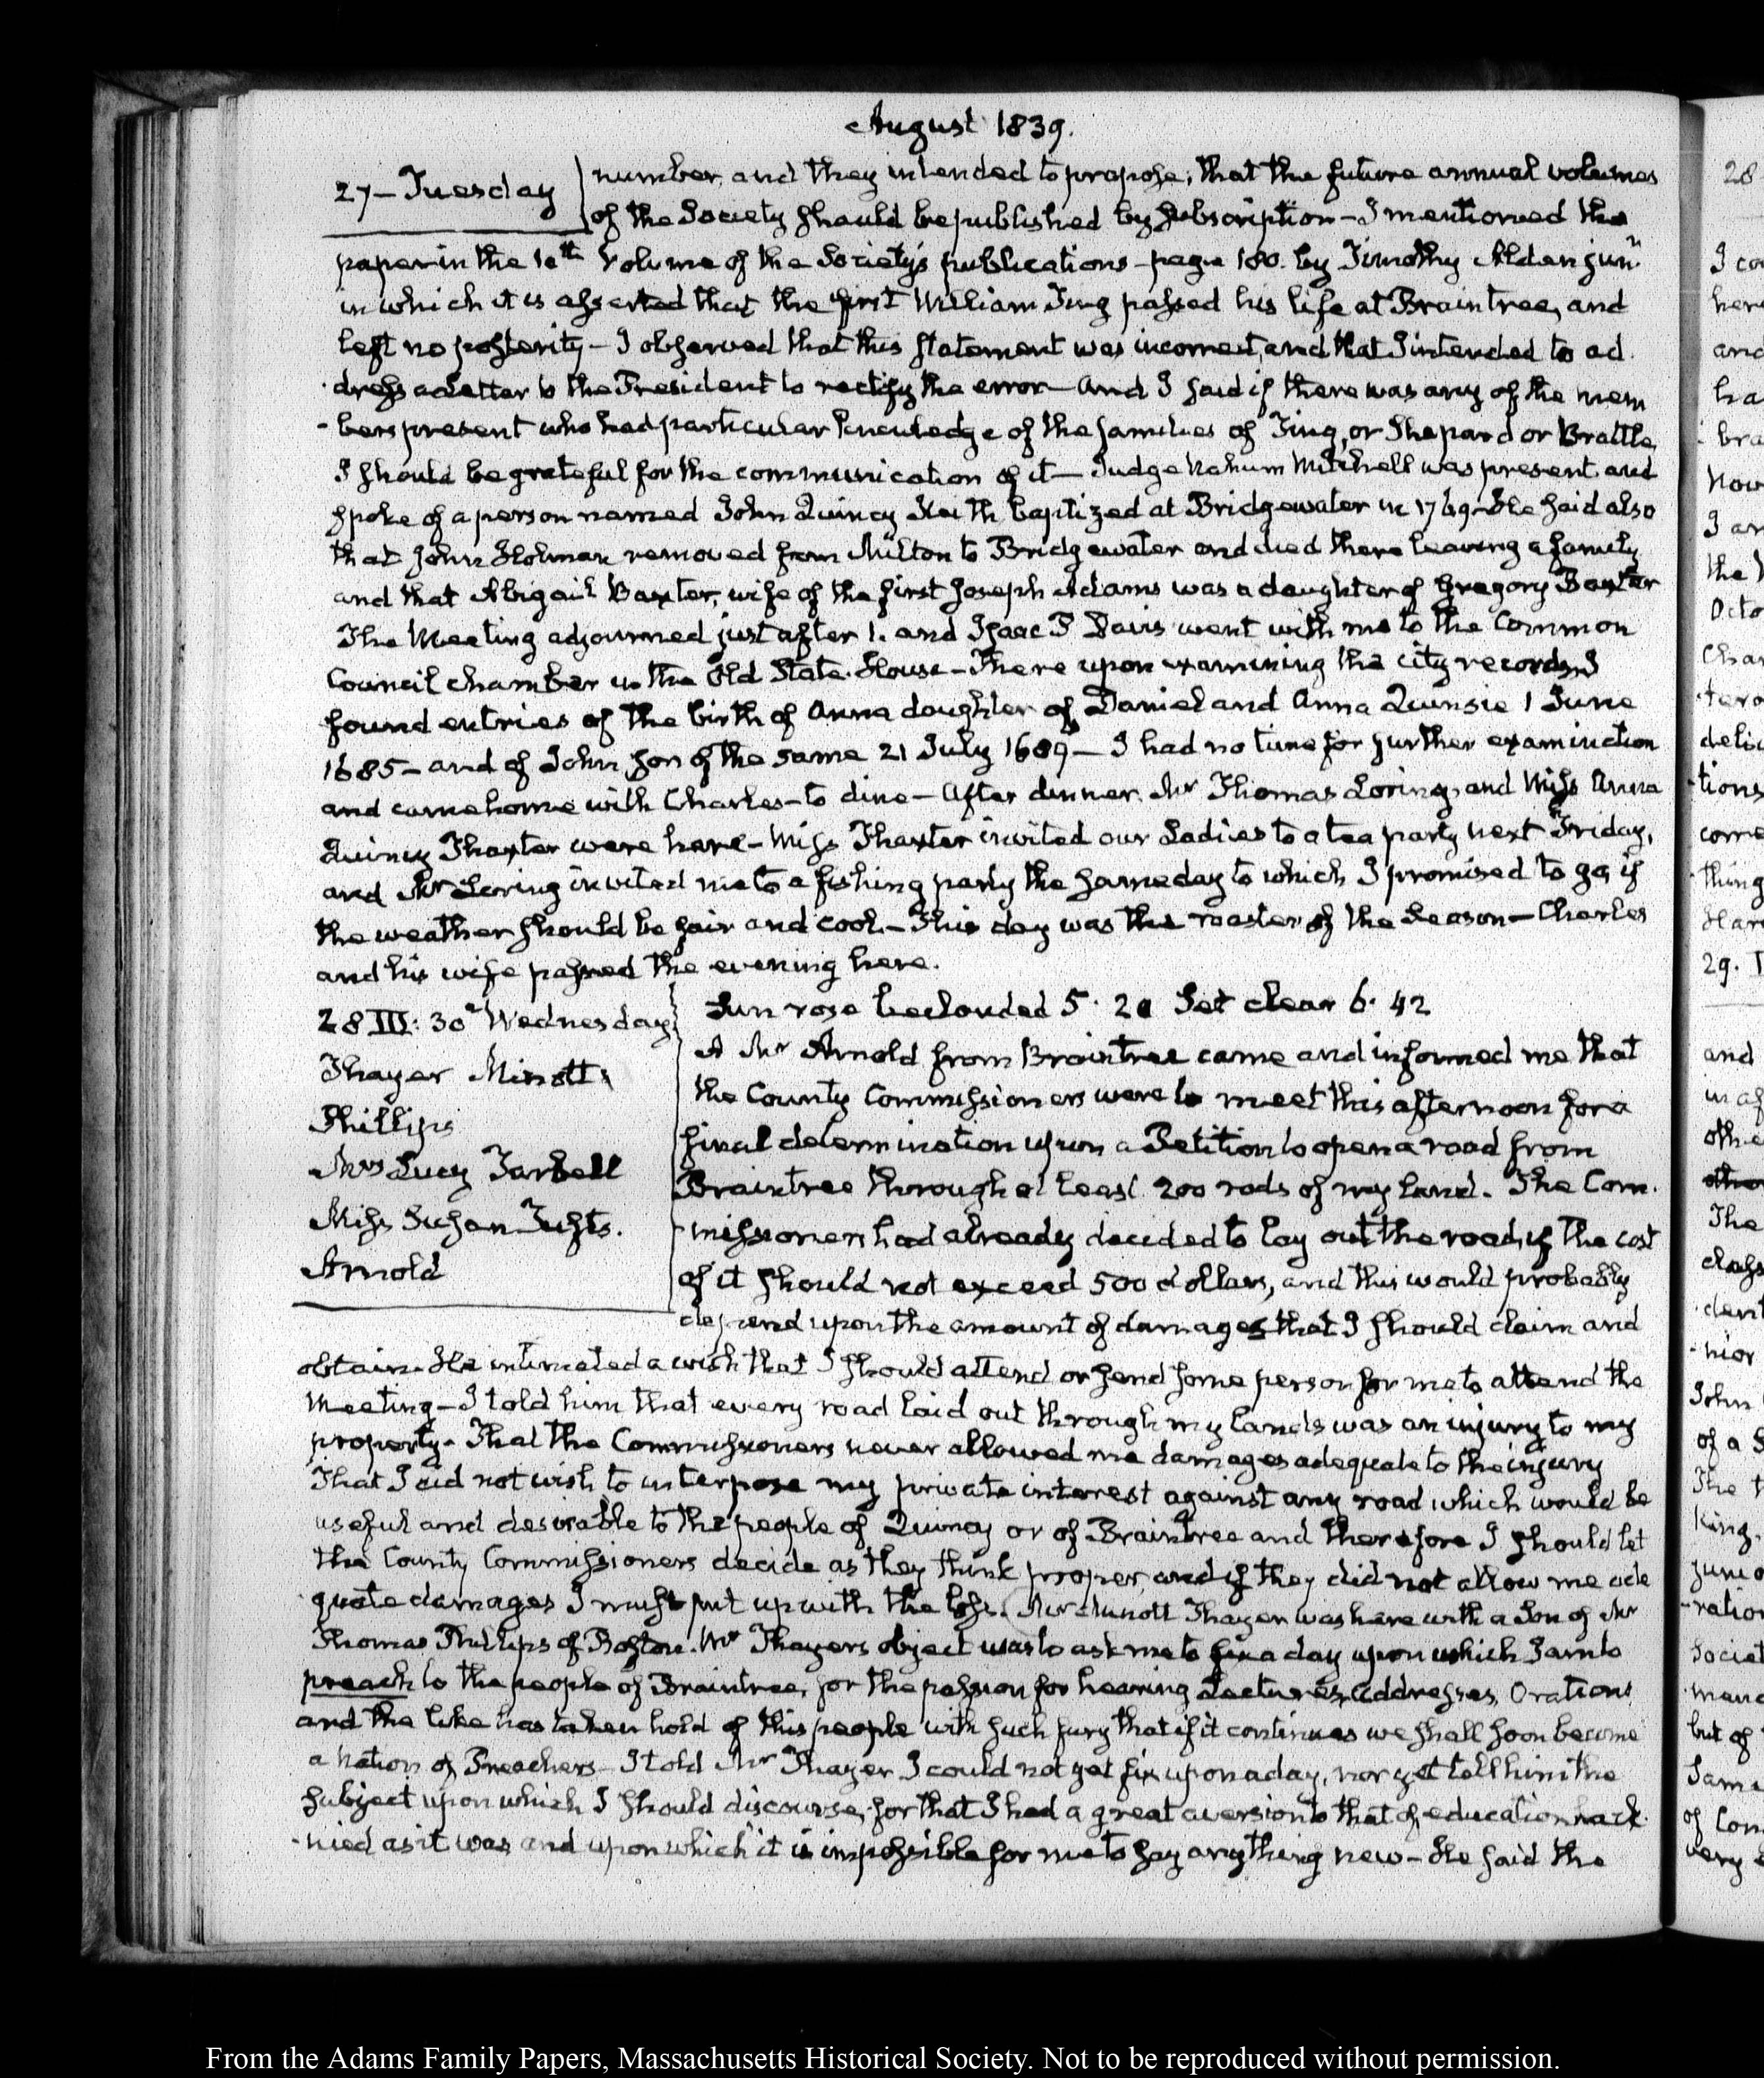 August 1839.
27 – Tuesday
number, and they intended to propose, that the future annual volumes
of the Society should be published by subscription – I mentioned the
paper in the 10th Volume of the Society's publications – page 180. by Timothy Alden junr
in which it is asserted that the first William Ting passed his life at Braintree, and
left no posterity – I observed that this statement was incorrect, and that I intended to ad
dress a Letter to the President to rectify the error – And I said if there was any of the mem
-bers present who had particular knowledge of the families of Ting, or Shepard or Brattle,
I should be grateful for the communication of it – Judge Nahum Mitchell was present and
spoke of a person named John Quincy Keith baptized at Bridgewater in 1769 – He said also
that John Holman removed from Milton to Bridgewater and died there leaving a family
and that Abigail Baxter, wife of the first Joseph Adams was a daughter of Gregory Baxter
The Meeting adjourned just after 1. and Isaac P Davis went with me to the Common
Council chamber in the Old State-House – There upon examining the city records I
found entries of the birth of Anna daughter of Daniel and Anna Quinsie 1 June
1685 – and of John, son of the same 21 July 1689 – I had no time for further examination
and came home with Charles – to dine – After dinner, Mr Thomas Loring, and Miss Anna
Quincy Thaxter were here – Miss Thaxter invited our Ladies to a tea party next Friday,
and Mr Loring invited me to a fishing party the same day to which I promised to go, if
the weather should be fair and cool – This day was the roaster of the Season – Charles
and his wife passed the evening here.
28 III: 30 Wednesday
Thayer Minott
Phillips
Mrs Lucy Tarbell
Miss Susan Tufts.
Arnold
Sun rose beclouded 5. 20 Set clear 6. 42
A Mr Arnold from Braintree came and informed me that
the County Commissioners were to meet this afternoon for a
final determination upon a Petition to open a road from
Braintree through at least 200 rods of my land. The Com.
-missioners had already decided to lay out the road, if the cost
of it should not exceed 500 dollars, and this would probably
depend upon the amount of damages that I should claim and
obtain – He intimated a wish that I should attend or send some person for me to attend the
Meeting – I told him that every road laid out through my lands was an injury to my
property – That the Commissioners never allowed me damages adequate to the injury
That I did not wish to interpose my private interest against any road which would be
useful and desirable to the people of Quincy or of Braintree and therefore I should let
the County Commissioners decide as they think proper, and if they did not allow me ade
quate damages I must put up with the loss. Mr Minott Thayer was here with a Son of Mr
Thomas Phillips of Boston. Mr Thayers object was to ask me to fix a day upon which I am to
preach to the people of Braintree, for the passion for hearing Lectures, addresses, Orations
and the like has taken hold of this people with such fury that if it continues we shall soon become
a nation of Preachers – I told Mr Thayer I could not yet fix upon a day, nor yet tell him the
subject upon which I should discourse, for that I had a great aversion to that of education hack
-nied as it was and upon which it is impossible for me to say any thing new – He said the
28
I co
here
and
ha
bra
Now
I an
the
Octo
Char
tera
deliv
-tions
come
thing
Har
29. T
and
in af
othe
The
class
dent
-nior
John
of a S
The t
king.
junio
-ratio
Societ
but of
Sam
of Con
very
From the Adams Family Papers, Massachusetts Historical Society. Not to be reproduced without permission.